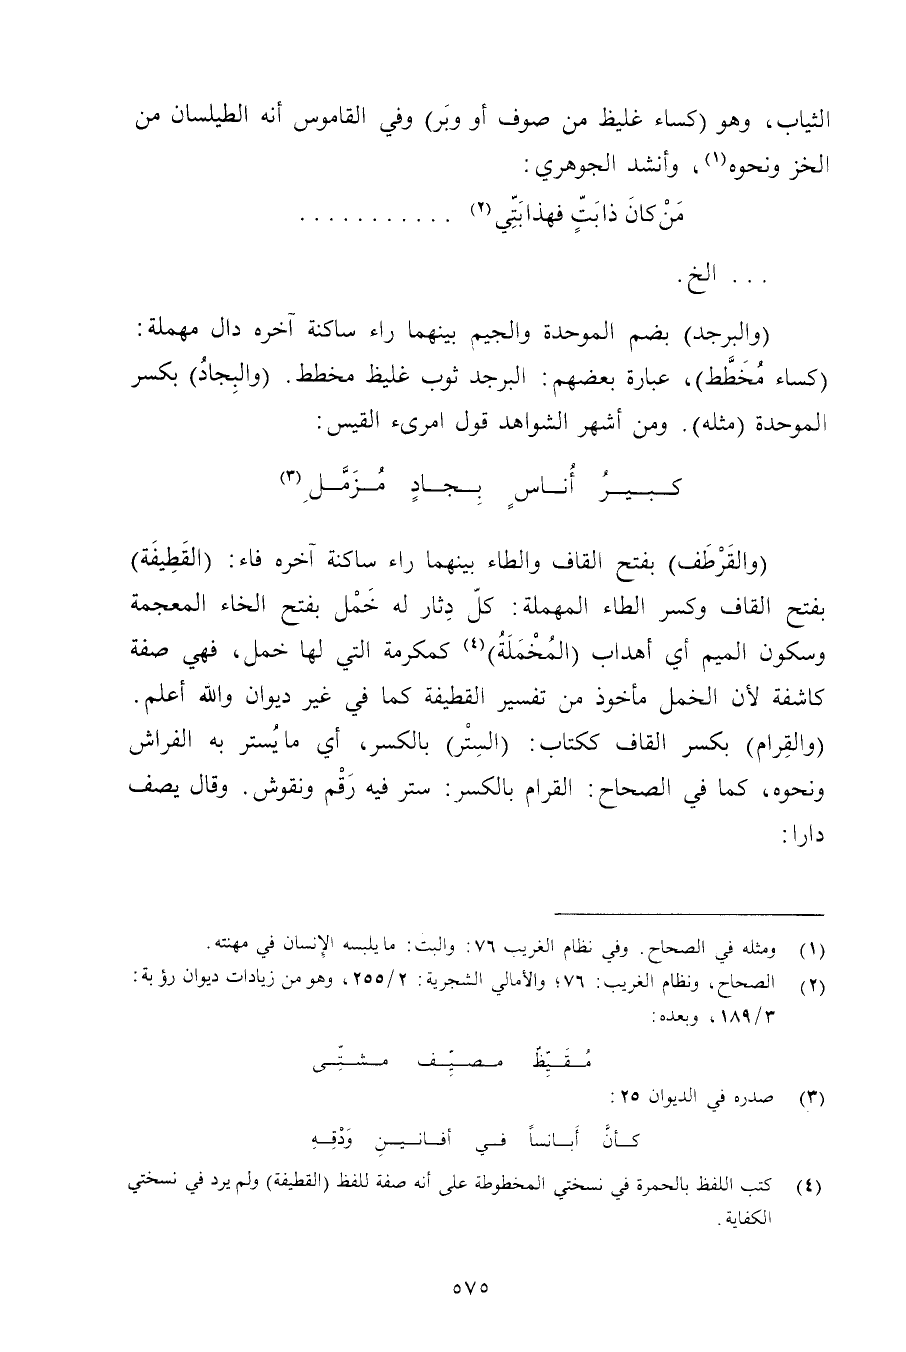 الثياب، وهو (كساء غليظ من صوف أو وبَر) وفي القاموس أنه الطيلسان من
الخز ونحوه(١)، وأنشد الجوهري:
مَنْ كانَ ذا بَتٍّ فهذا بَتِّي(٢) . . . . . . . . . . .
. . . الخ.
(والبرجد) بضم الموحدة والجيم بينهما راء ساكنة آخره دال مهملة:
(كساء مُخَطَّط)، عبارة بعضهم: البرجد ثوب غليظ مخطط. (والبِجادُ) بكسر
الموحدة (مثله). ومن أشهر الشواهد قول امرىء القيس:
كـبـيـرُ أُنـاسٍ بِـجـادٍ مُـزَمَّـلِ(٣)
(والقَرْطَف) بفتح القاف والطاء بينهما راء ساكنة آخره فاء: (القَطِيفَة)
بفتح القاف وكسر الطاء المهملة: كلّ دِثار له خَمْل بفتح الخاء المعجمة
وسكون الميم أي أهداب (المُخْمَلَةُ)(٤) كمكرمة التي لها خمل، فهي صفة
كاشفة لأن الخمل مأخوذ من تفسير القطيفة كما في غير ديوان والله أعلم.
(والقِرام) بكسر القاف ككتاب: (السِتْر) بالكسر، أي ما يُستر به الفراش
ونحوه، كما في الصحاح: القرام بالكسر: ستر فيه رَقْم ونقوش. وقال يصف
دارا:
(١) ومثله في الصحاح. وفي نظام الغريب ٧٦: والبت: ما يلبسه الإنسان في مهنته.
(٢) الصحاح، ونظام الغريب: ٧٦؛ والأمالي الشجرية: ٢/٢٥٥، وهو من زيادات ديوان رؤبة:
٣/١٨٩، وبعده:
مُـقَـيِّظٌ مـصـيِّـف مـشـتِّـى
(٣) صدره في الديوان ٢٥:
كـأنَّ أَبـانـاً فـي أفـانـيـنِ وَدْقِـهِ
(٤) كتب اللفظ بالحمرة في نسختي المخطوطة على أنه صفة للفظ (القطيفة) ولم يرد في نسختي
الكفاية.
٥٧٥